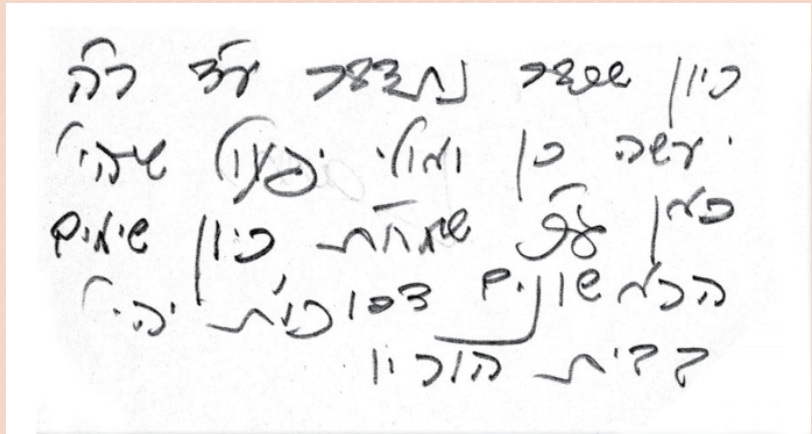 כיון שכבר נתדבר ע"ד ר"ה
יעשה כן ואולי יפעול שיהי'
כאן עכ"פ שמח"ת כיון שימים
הראשונים דסוכות יהי'
בבית הוריו